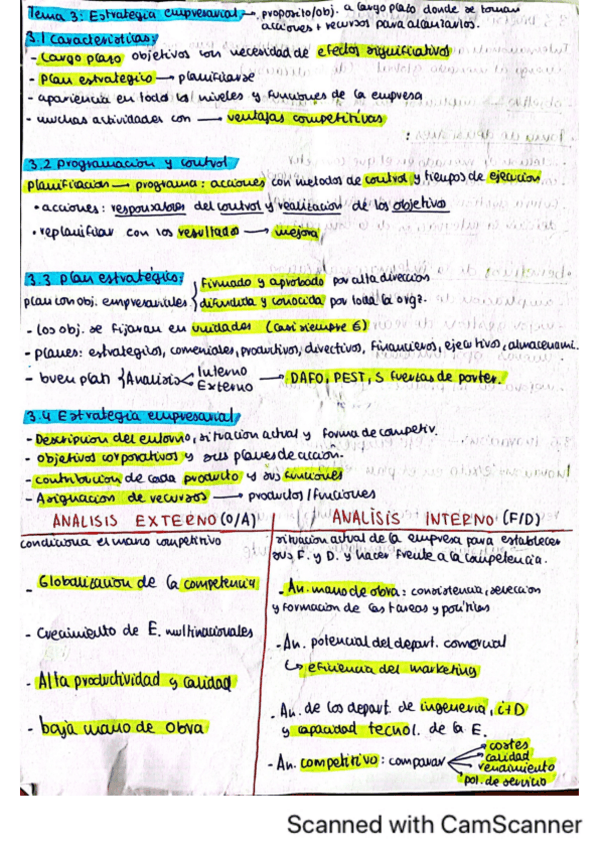 Tema 3: Estrategia empresarial → proposito/obj. a largo plazo donde se toman
acciones + recursos para alcanzarlos.
3.1 Características:
- Largo plazo objetivos con necesidad de efectos significativos
- Plan estrategico → planificarse
- apariencia en todos los niveles y funciones de la empresa
- muchas actividades con → ventajas competitivas
3.2 Programacion y control
Planifiación → programa: acciones con metodos de control y tiempos de ejecucion
• acciones: responsables del control y realización de los objetivos
• replanificar con los resultados → mejora
3.3 Plan estratégico:
firmado y aprobado por alta direccion
plan con obj. empresariales difundida y conocida por toda la org?.
- los obj. se fijaran en unidades (casi siempre €)
- planes: estrategicos, comerciales, productivos, directivos, financieros, ejecutivos, almacenami.
- buen plan { Analisis < Interno
Externo → DAFO, PEST, 5 fuerzas de porter.
3.4 Estrategia empresarial
- Descripcion del entorno, situación actual y forma de competir.
- objetivos corporativos y sus planes de acción.
- contribucion de cada producto y sus funciones
- Asignacion de recursos → productos/funciones
ANALISIS EXTERNO (O/A)
condiciona el marco competitivo
- Globalizacion de la competencia
- Crecimiento de E. multinacionales
- Alta productividad y calidad
- baja mano de obra
ANALISIS INTERNO (F/D)
situacion actual de la empresa para establecer
sus F. y D. y hacer frente a la competencia.
- An. mano de obra: consistencia, seleccion
y formacion de las tareas y
- An. potencial del depart. comercial
↳ eficiencia del marketing
- An. de los depart. de ingeneria, i+D
y capacidad tecnol. de la E.
- An. competitivo: comparar
costes
calidad
rendimiento
pol. de servicio
Scanned with CamScanner